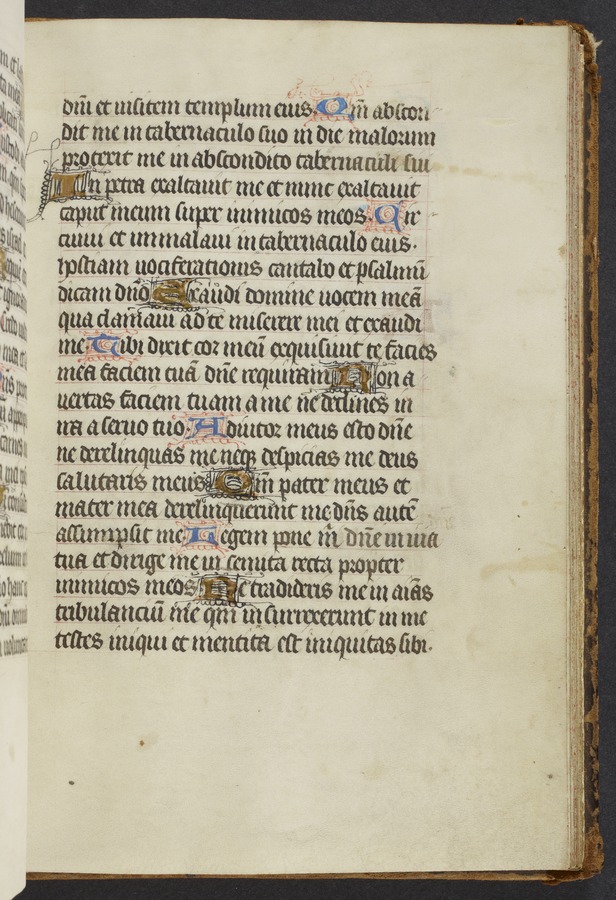 dm̄ et uisitem templum eius. Qm̄ abscon
dit me in tabernaculo suo in die malorum
protexit me in abscondito tabernaculi sui
In petra exaltauit me et nunc exaltauit
caput meum super inimicos meos. Cir
cuiui et immolaui in tabernaculo eius.
hostiam uociferationis cantabo et psalmū
dicam dn̄o Exaudi domine uocem meā
qua clamaui ad te miserere mei et exaudi
me. Tibi dixit cor meū exquisiuit te facies
mea faciem tuā dn̄e requiram Non a
uertas faciem tuam a me ne declines in
ira a seruo tuo. Adiutor meus esto dn̄e
ne derelinquas me neq despicias me deus
salutaris meus Qm̄ pater meus et
mater mea derelinquerunt me dn̄s autē
assumpsit me Legem pone m̄ dn̄e in uia
tua et dirige me in semita recta propter
inimicos meos Ne tradideris me in aīas
tribulanciū me qm̄ insurrexerunt in me
testes iniqui et mentita est iniquitas sibi.